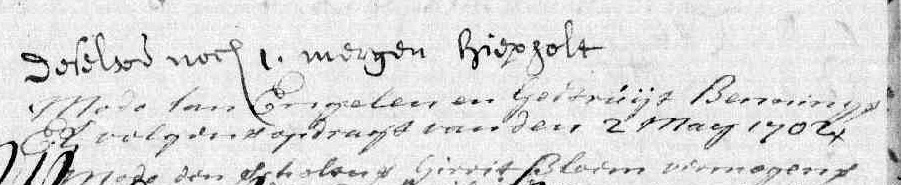 Deselve noch 1. mergen hiepholt
Modo Jan Engelen en Geertruijt Bennings
Et volgens opdragt van den 2 May 1702
Modo den scholtus Gerrit Bloem vermogens